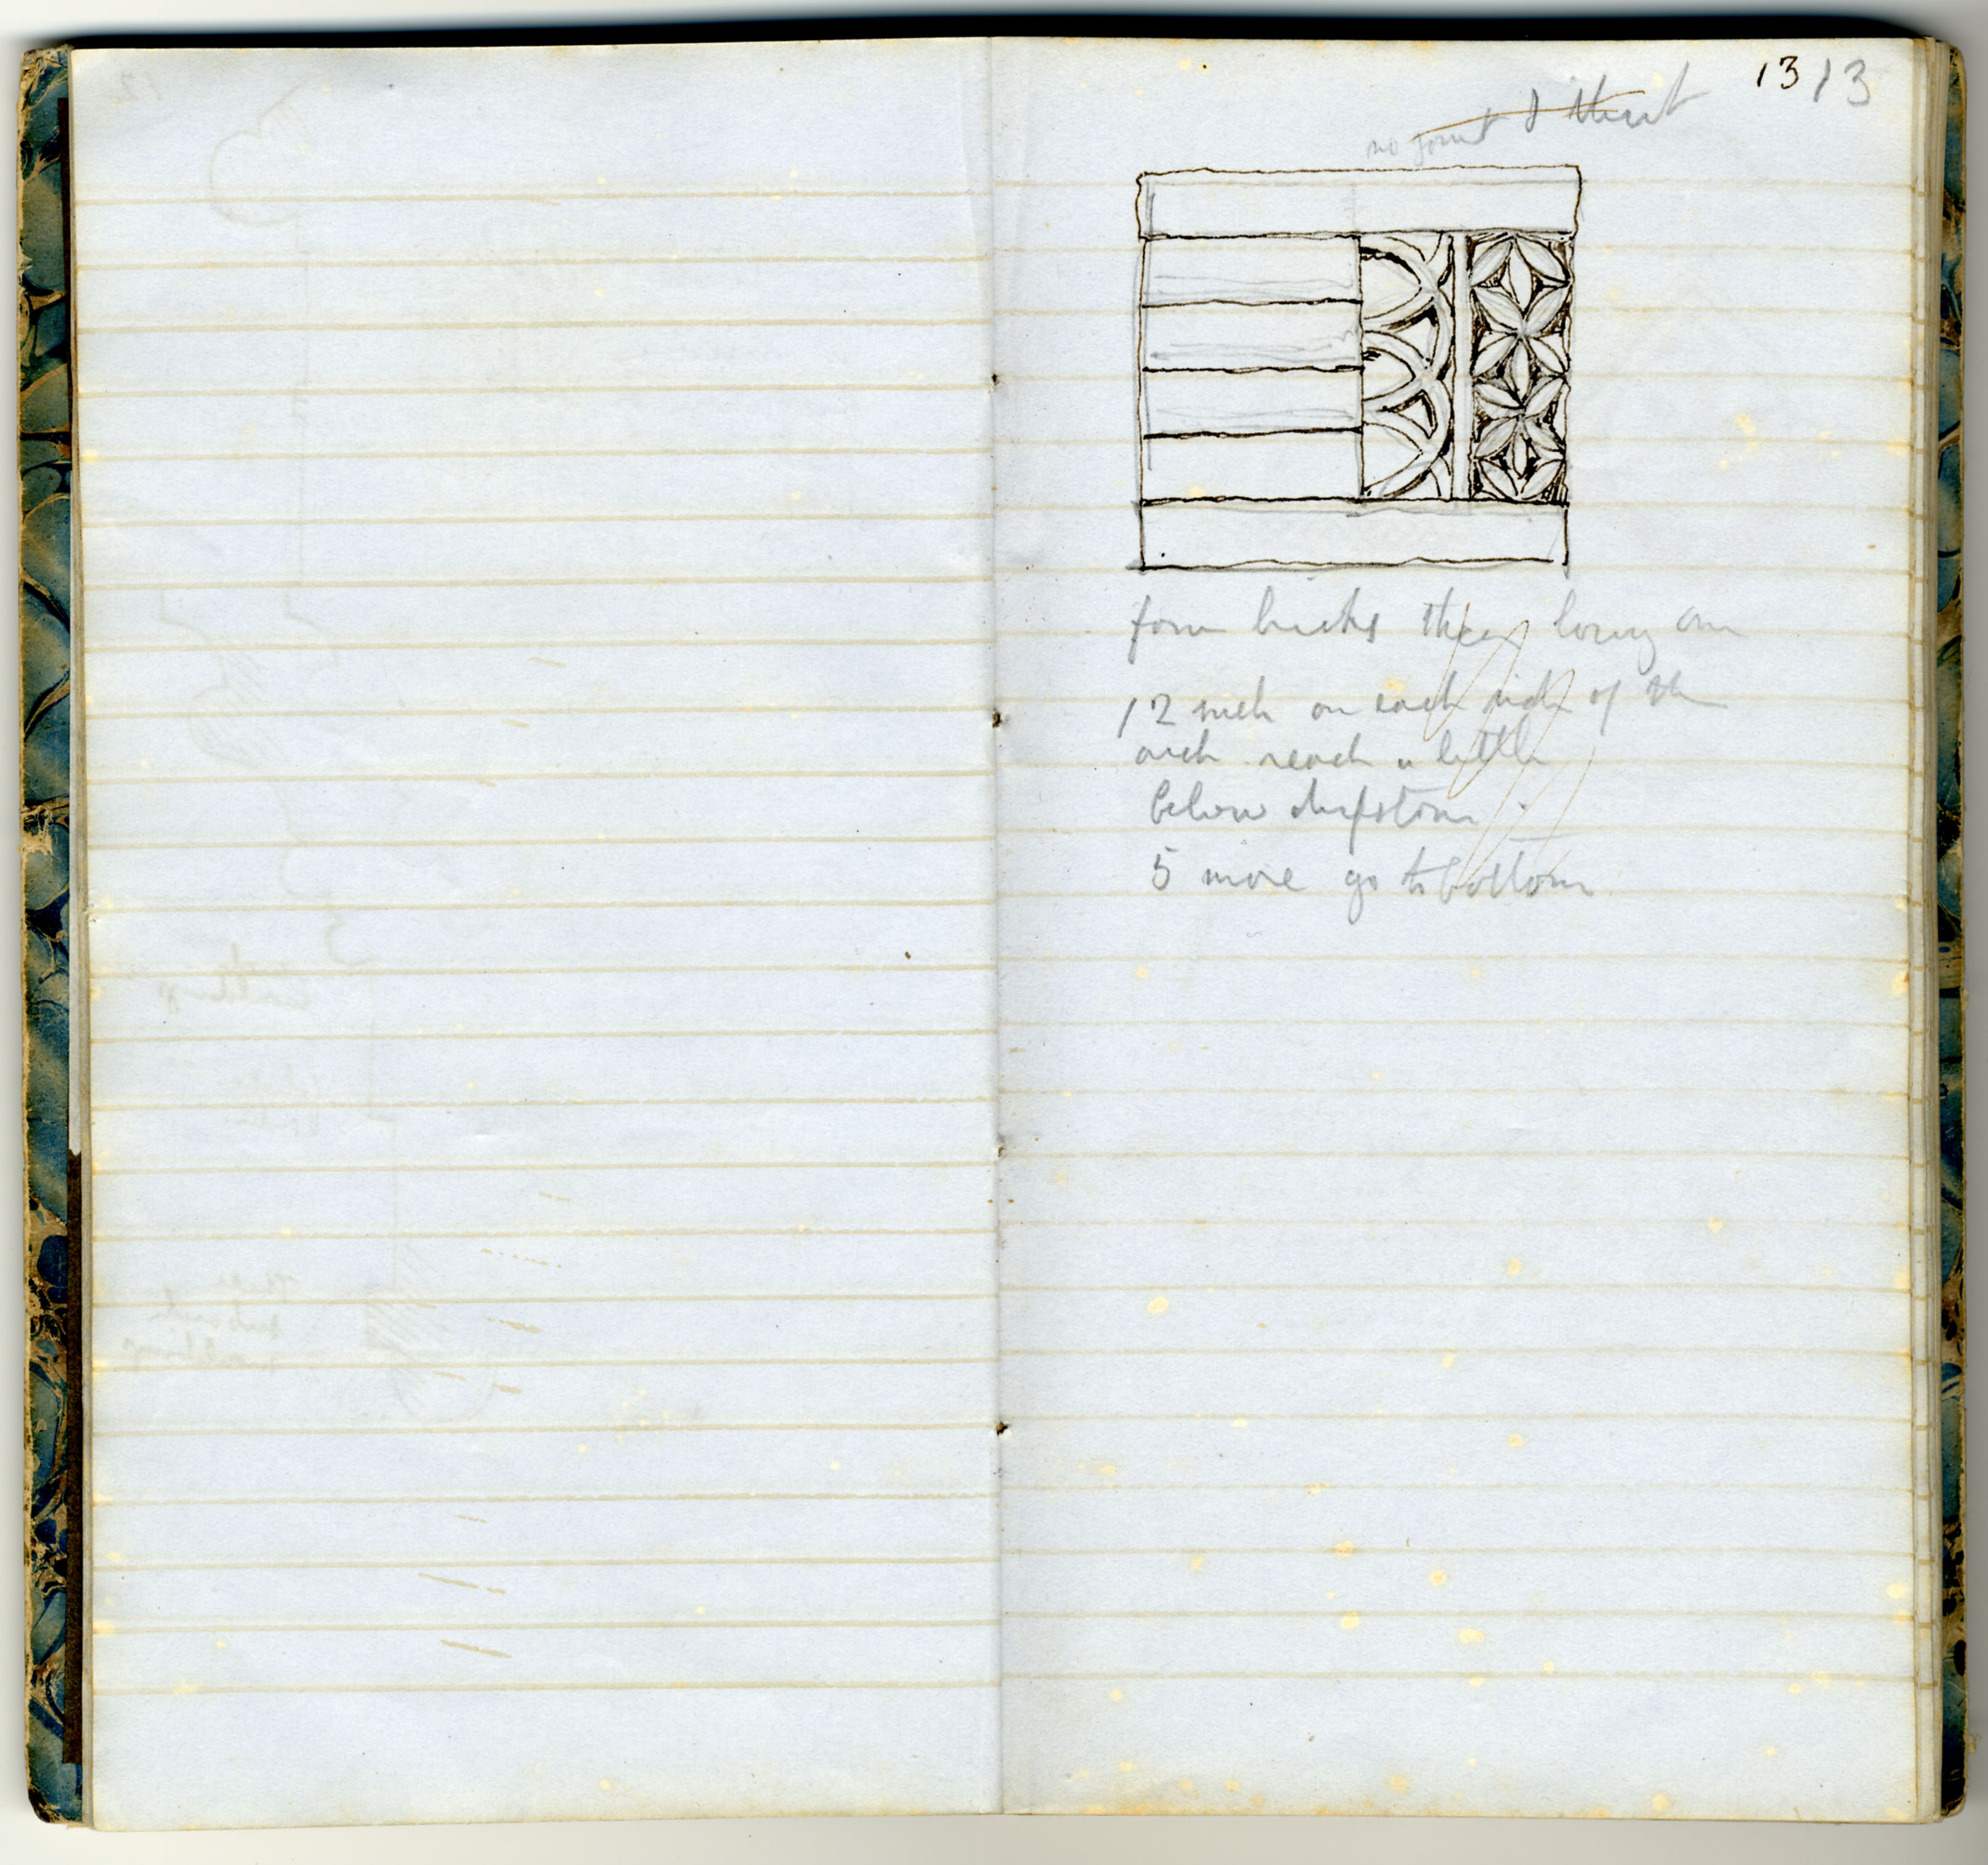 13 13
no joint I think
four bricks three long on
12 such on each side of the
arch reach a little
below dripstone.
5 more go to bottom